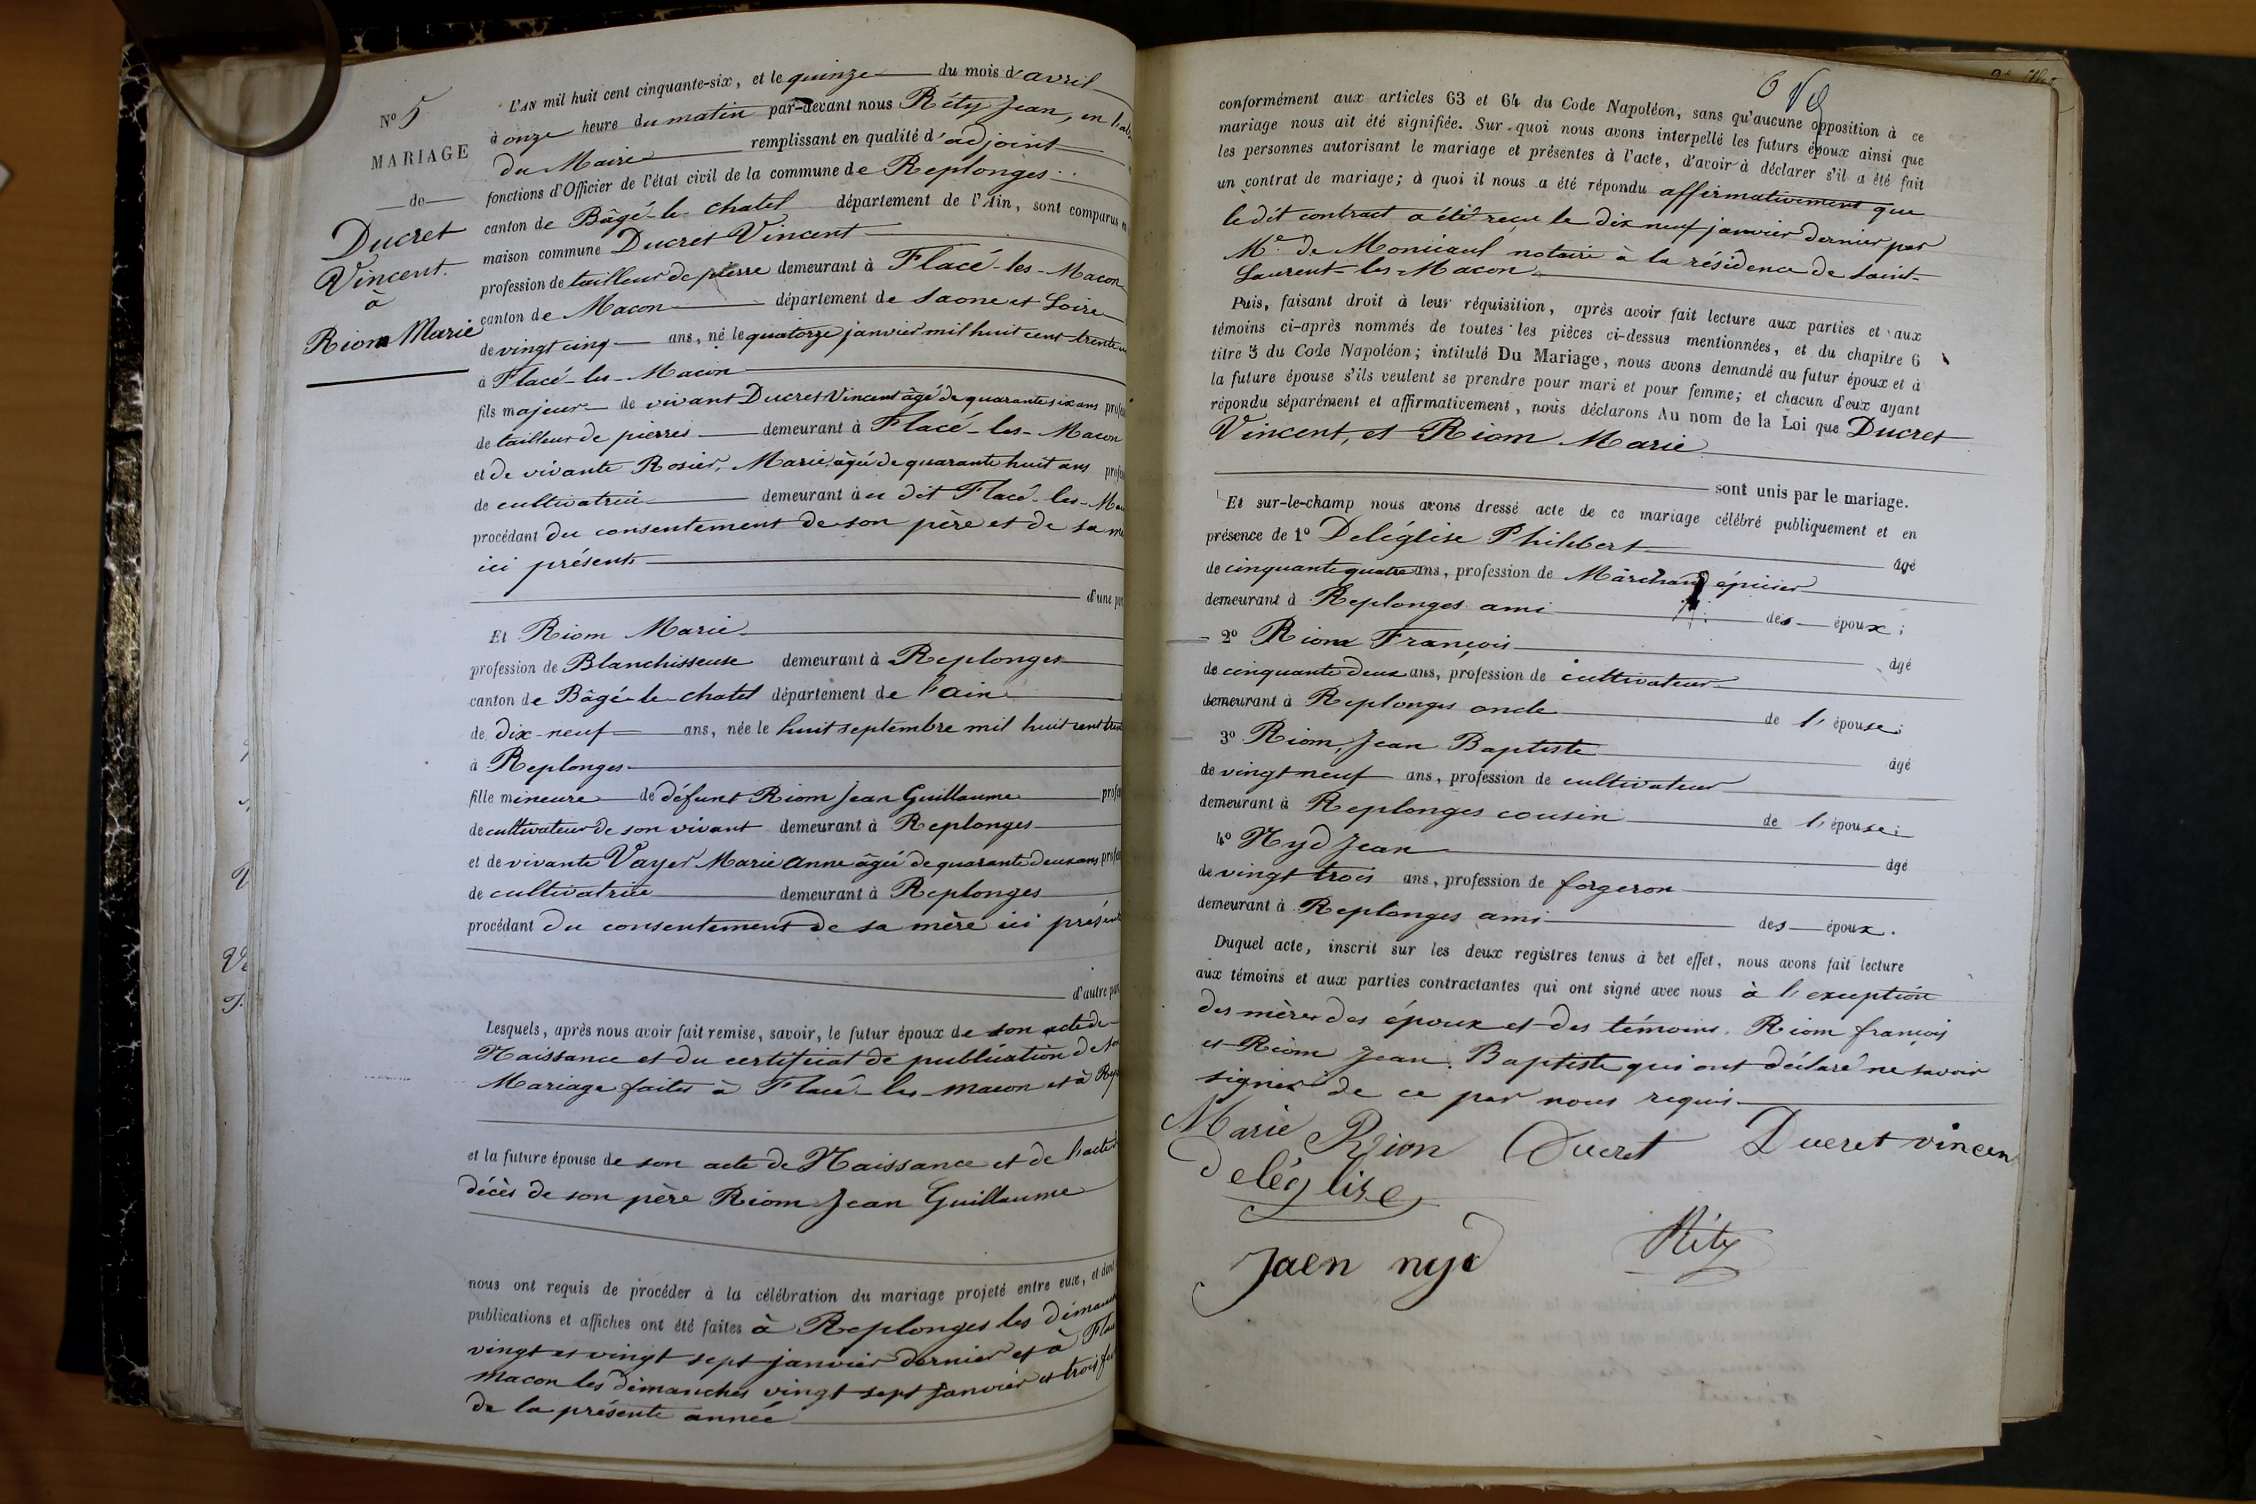 Nº 5
MARIAGE
de
Ducret
Vincent.
à
Riom Marie
L'AN mil huit cent cinquante-six, et le quinze du mois d'avril
à onze heure du matin par-devant nous Réty Jean, en
du Maire remplissant en qualité d'adjoint
fonctions d'Officier de l'état civil de la commune de Replonges
canton de Bâgé-le-chatel département de l'Ain, sont comparus en
maison commune Ducret Vincent
profession de tailleur de pierre demeurant à Flacé-les-Macon
canton de Macon département de Saone et Loire
de vingt cinq ans, né le quatorze janvier mil huit cent trente
à Flacé-les-Macon
fils majeur de vivant Ducret Vincent âgé de quarante six ans
de tailleur de pierres demeurant à Flacé-les-Macon
et de vivante Rosier, Marie, âgée de quarante huit ans
de cultivatrice demeurant au dit Flacé-les-
procédant du consentement de son père et de sa
ici présents
d'une
Et Riom Marie
profession de Blanchisseuse demeurant à Replonges
canton de Bâgé-le-chatel département de l'ain
de dix-neuf ans, née le huit septembre mil huit cent
à Replonges
fille mineure de défunt Riom Jean Guillaume
de cultivateur de son vivant demeurant à Replonges
et de vivante Vayer Marie Anne âgée de quarante deux ans
de cultivatrice demeurant à Replonges
procédant du consentement de sa mère ici
d'autre
Lesquels, après nous avoir fait remise, savoir, le futur époux de son acte de
Naissance et du certificat de publication de
Mariage faites à Flacé-les-Macon et à
et la future épouse de son acte de Naissance et de l'acte
décès de son père Riom Jean Guillaume
nous ont requis de procéder à la célébration du mariage projeté entre eux, et dont
publications et affiches ont été faites à Replonges les
vingt et vingt sept janvier dernier et à
Macon les dimanches vingt sept janvier et trois
de la présente année
conformément aux articles 63 et 64 du Code Napoléon, sans qu'aucune opposition à ce
mariage nous ait été signifiée. Sur-quoi nous avons interpellé les futurs époux ainsi que
les personnes autorisant le mariage et présentes à l'acte, d'avoir à déclarer s'il a été fait
un contrat de mariage; à quoi il nous a été répondu affirmativement que
le dit contract a été reçu le dix neuf janvier dernier par
Me. de notaire à la résidence de Saint-
Laurent-les-Macon
Puis, faisant droit à leur réquisition, après avoir fait lecture aux parties et aux
témoins ci-après nommés de toutes les pièces ci-dessus mentionnées, et du chapitre 6
titre 5 du Code Napoléon; intitulé Du Mariage, nous avons demandé au futur époux et à
la future épouse s'ils veulent se prendre pour mari et pour femme; et chacun d'eux ayant
répondu séparément et affirmativement, nous déclarons Au nom de la Loi que Ducret
Vincent, et Riom Marie
sont unis par le mariage.
Et sur-le-champ nous avons dressé acte de ce mariage célébré publiquement et en
présence de 1º Deléglise Philibert âgé
de cinquante quatre ans, profession de Marchand épicier
demeurant à Replonges ami des époux;
2º Riom François âgé
de cinquante deux ans, profession de cultivateur
demeurant à Replonges oncle de l'épouse;
3º Riom, Jean Baptiste âgé
de vingt neuf ans, profession de cultivateur
demeurant à Replonges cousin de l'épouse;
4º Nyd Jean âgé
de vingt trois ans, profession de forgeron
demeurant à Replonges ami des époux.
Duquel acte, inscrit sur les deux registres tenus à cet effet, nous avons fait lecture
aux témoins et aux parties contractantes qui ont signé avec nous à l'exception
des mères des époux et des témoins. Riom françois
et Riom Jean Baptiste qui ont déclaré ne savoir
signer de ce par nous requis
Marie Rion Ducret Ducret vincen
Deléglise
Réty
Jaen nyd